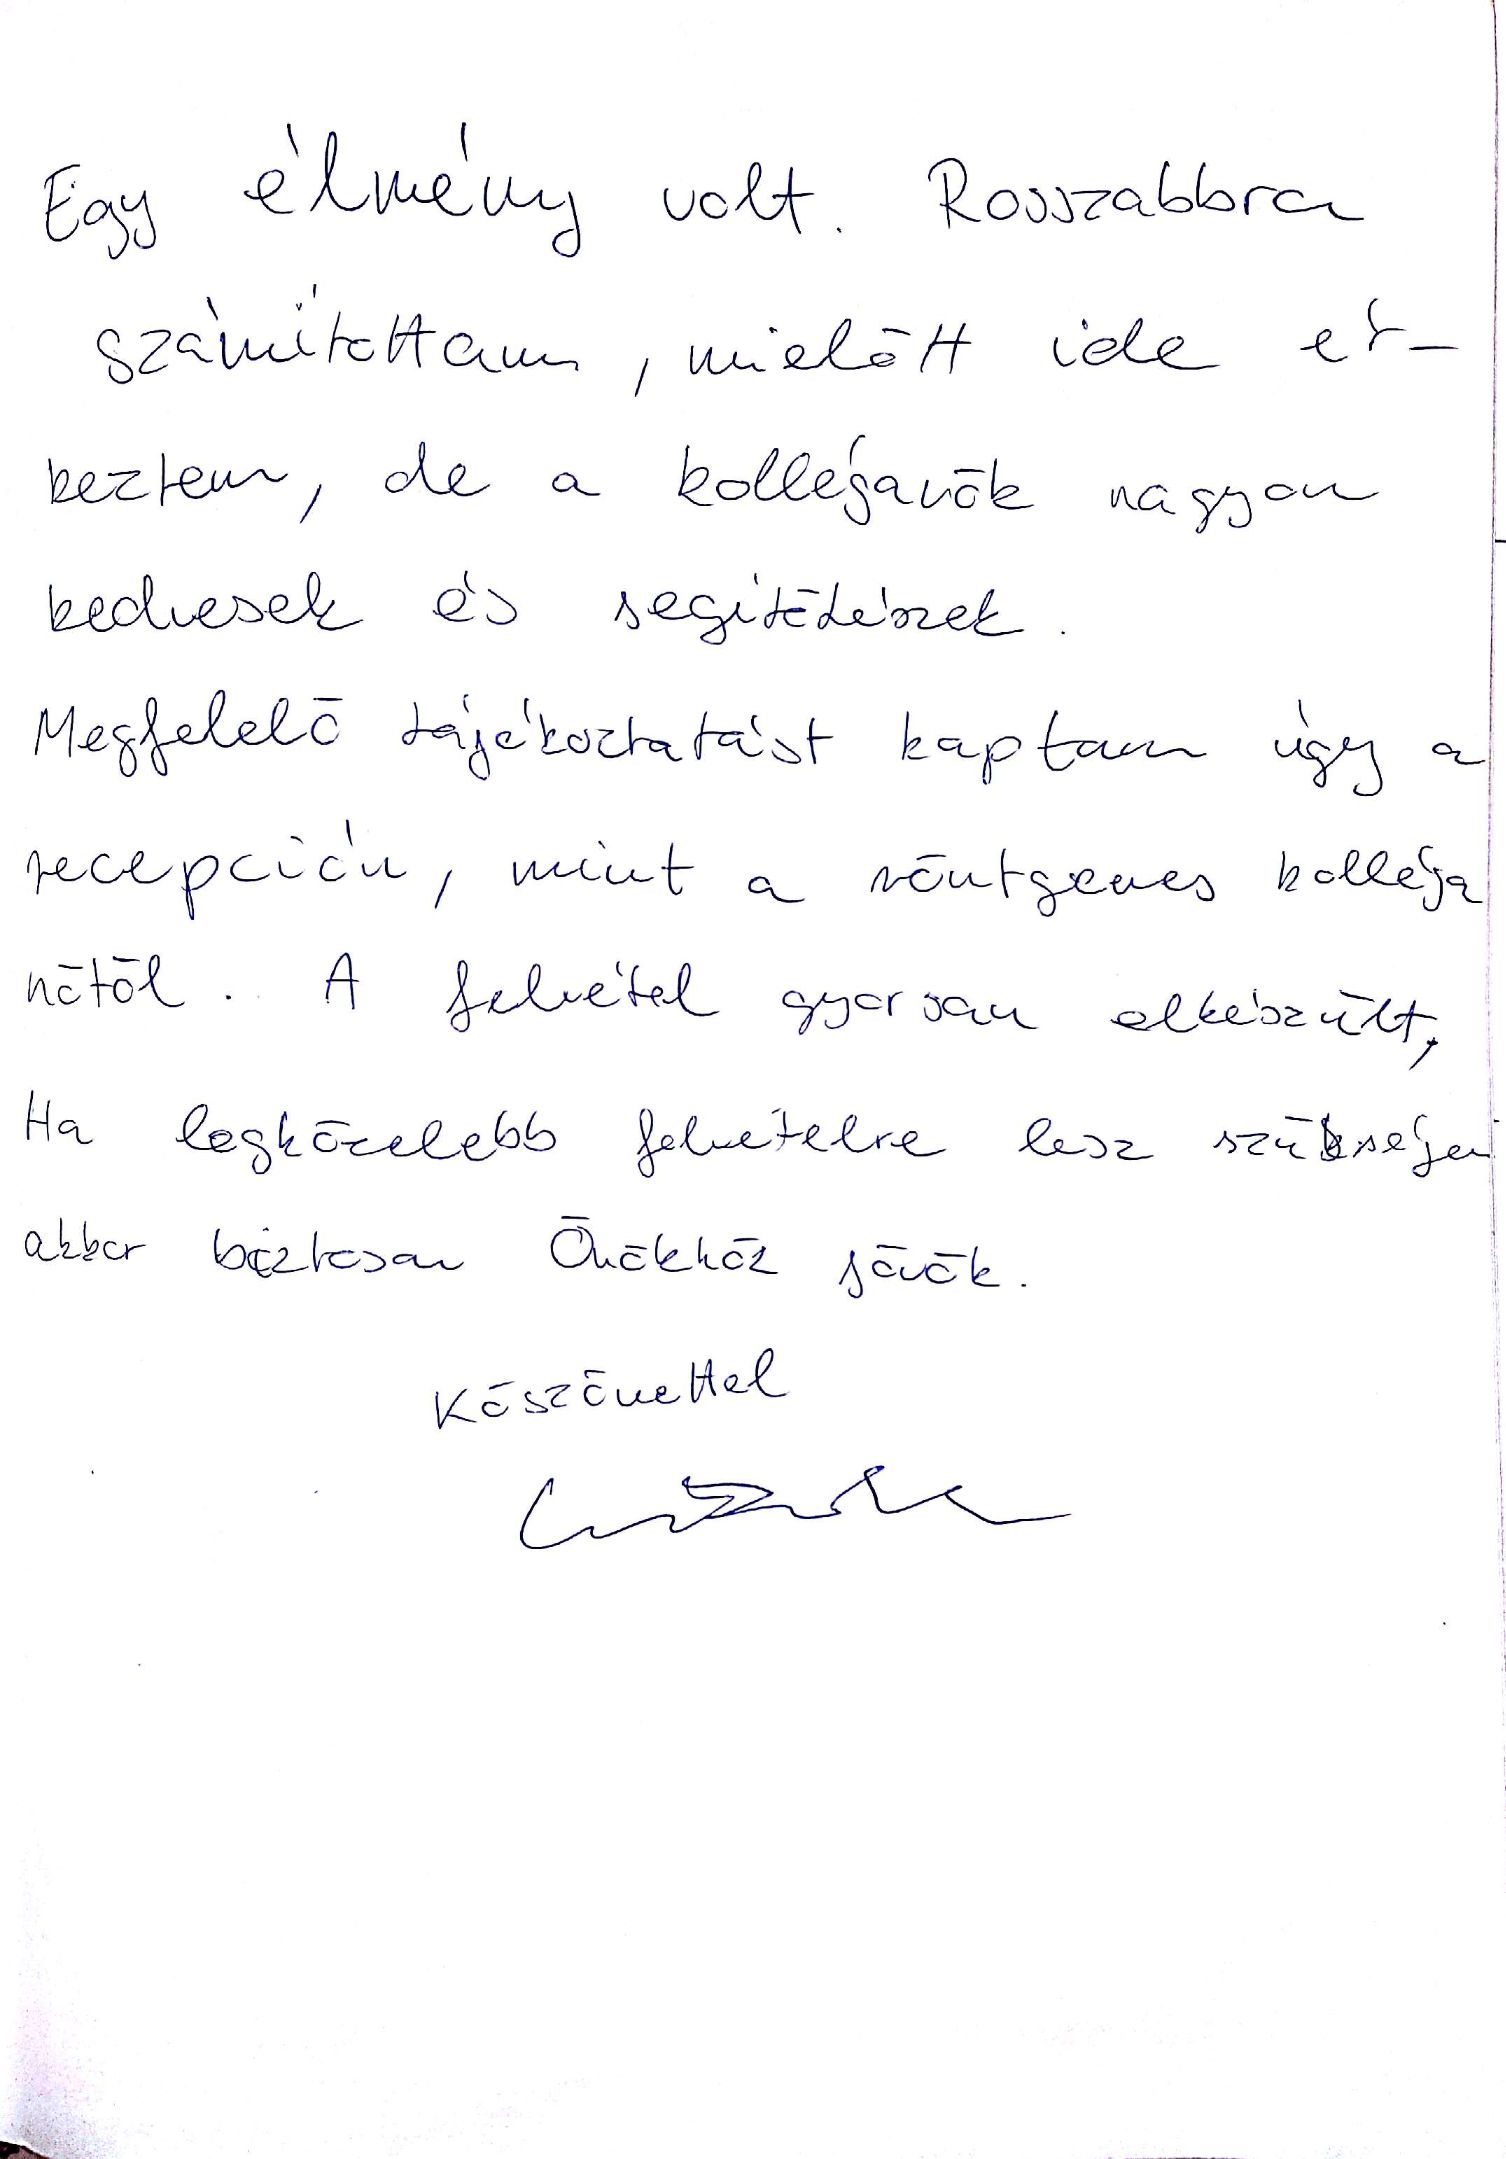 Egy élmény volt. Rosszabbra
számítottam, mielőtt ide ér-
keztem, de a kolléganők nagyon
kedvesek és segítőkészek.
Megfelelő tájékoztatást kaptam úgy a
recepción, mint a röntgenes kolléga
nőtől. A felvétel gyorsan elkészült,
Ha legközelebb felvételre lesz szükségem
akkor biztosan Önökhöz jövök.
Köszönettel